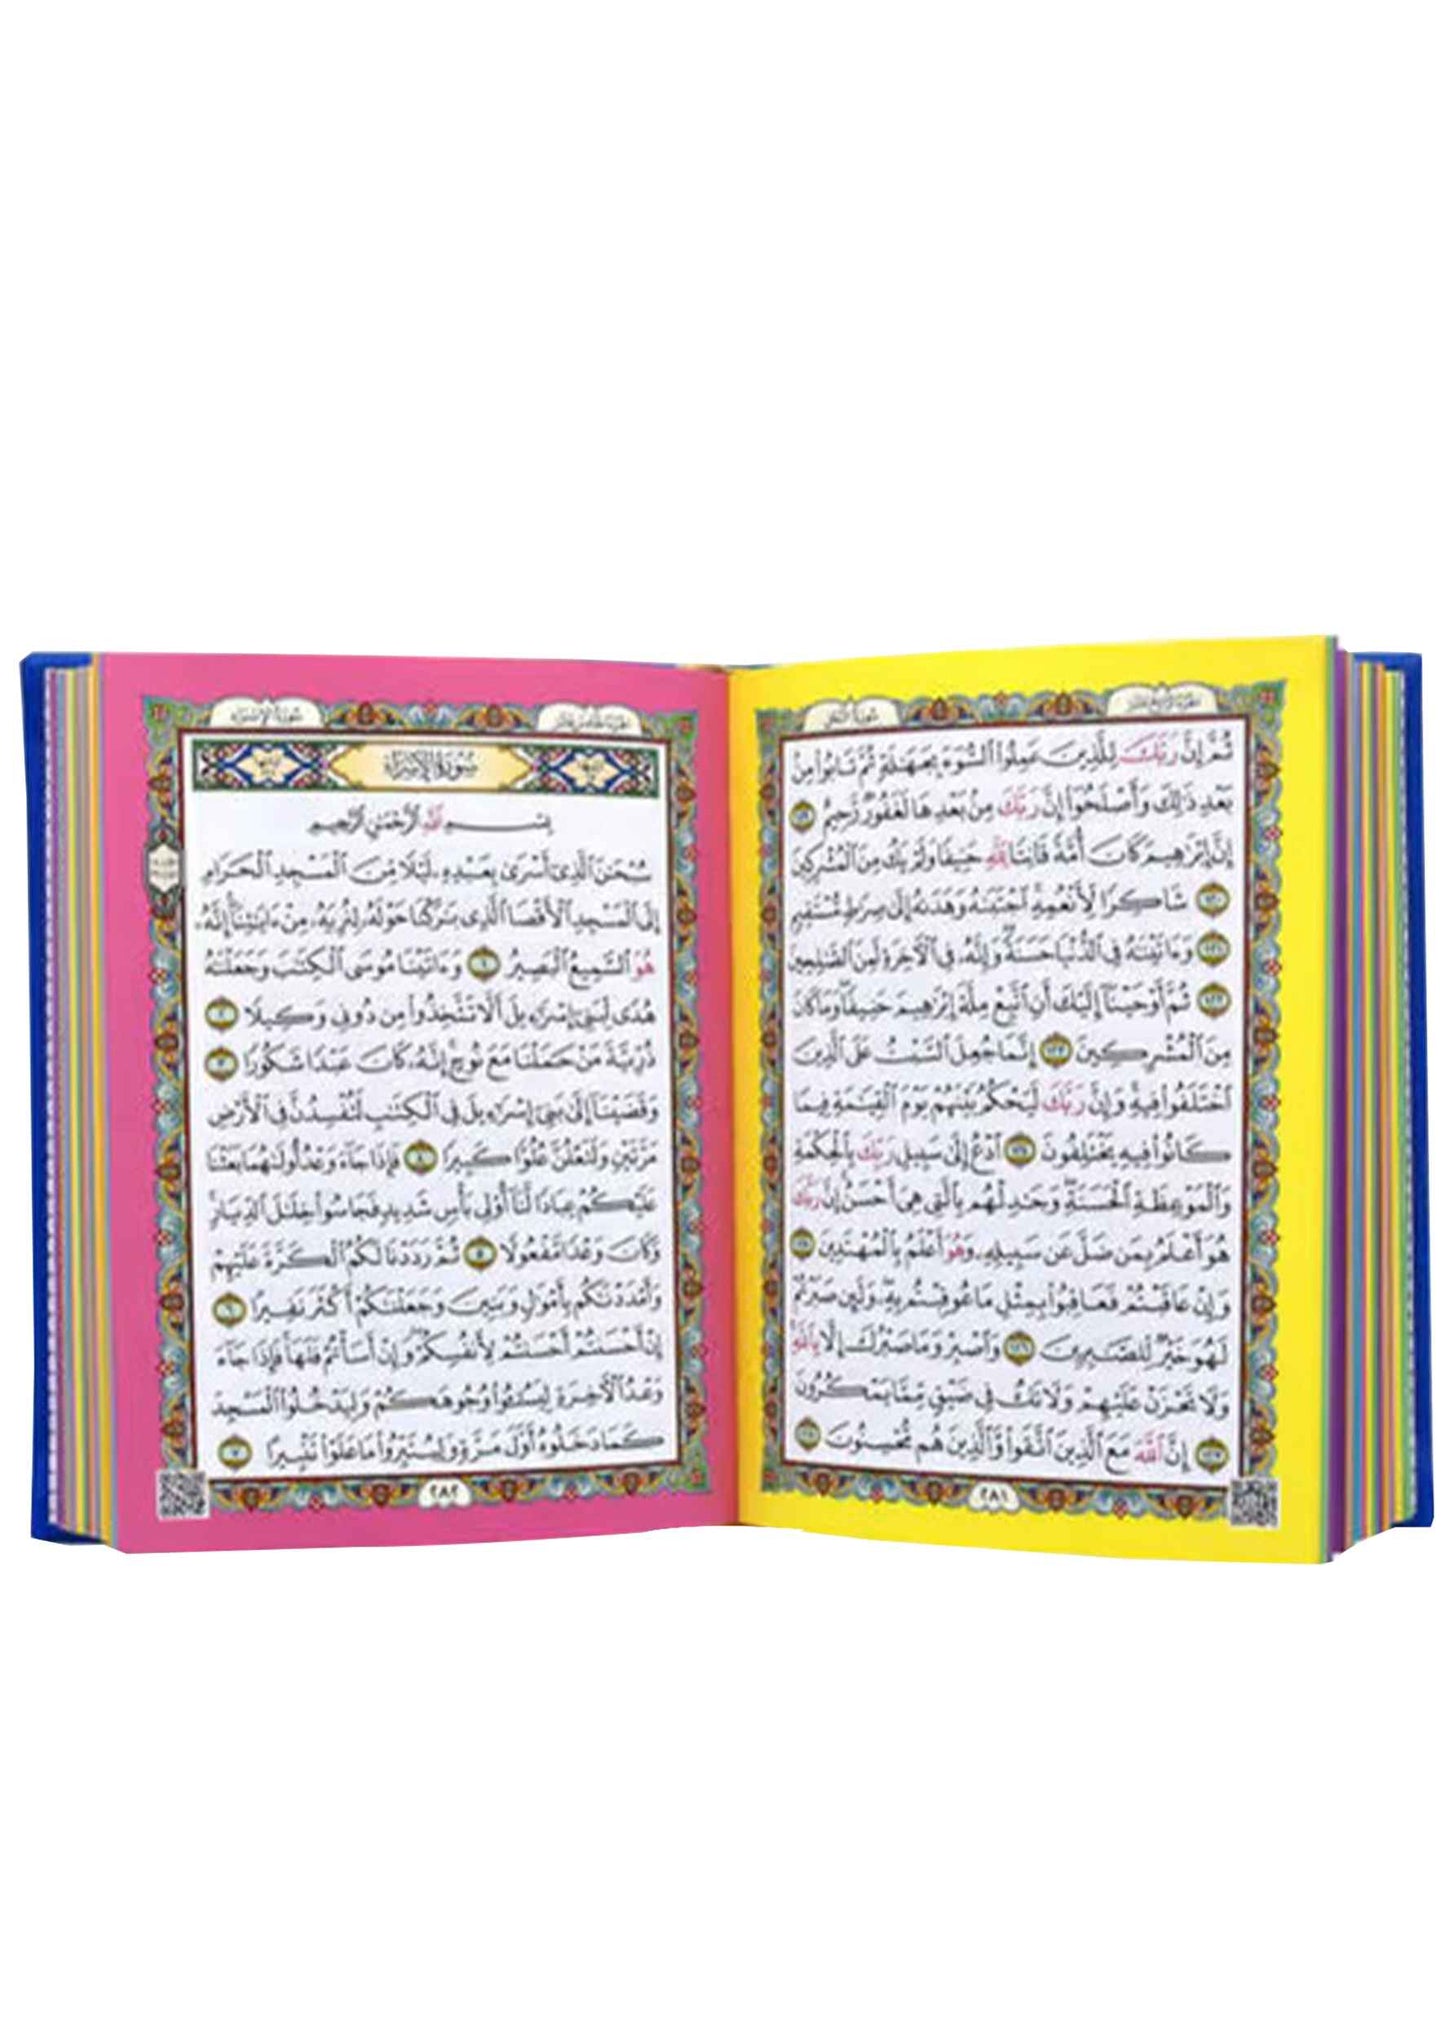 سورة النحل
الجزء الرابع عشر
ثُمَّ إِنَّ رَبَّكَ لِلَّذِينَ عَمِلُوا۟ ٱلسُّوٓءَ بِجَهَـٰلَةٍ ثُمَّ تَابُوا۟ مِنۢ
بَعْدِ ذَٰلِكَ وَأَصْلَحُوٓا۟ إِنَّ رَبَّكَ مِنۢ بَعْدِهَا لَغَفُورٌ رَّحِيمٌ ١١٩
إِنَّ إِبْرَٰهِيمَ كَانَ أُمَّةً قَانِتًا لِّلَّهِ حَنِيفًا وَلَمْ يَكُ مِنَ ٱلْمُشْرِكِينَ
١٢٠ شَاكِرًا لِّأَنْعُمِهِ ٱجْتَبَىٰهُ وَهَدَىٰهُ إِلَىٰ صِرَٰطٍ مُّسْتَقِيمٍ
١٢١ وَءَاتَيْنَـٰهُ فِى ٱلدُّنْيَا حَسَنَةً وَإِنَّهُۥ فِى ٱلْـَٔاخِرَةِ لَمِنَ ٱلصَّـٰلِحِينَ
١٢٢ ثُمَّ أَوْحَيْنَآ إِلَيْكَ أَنِ ٱتَّبِعْ مِلَّةَ إِبْرَٰهِيمَ حَنِيفًا وَمَا كَانَ
مِنَ ٱلْمُشْرِكِينَ ١٢٣ إِنَّمَا جُعِلَ ٱلسَّبْتُ عَلَى ٱلَّذِينَ
ٱخْتَلَفُوا۟ فِيهِ وَإِنَّ رَبَّكَ لَيَحْكُمُ بَيْنَهُمْ يَوْمَ ٱلْقِيَـٰمَةِ فِيمَا
كَانُوا۟ فِيهِ يَخْتَلِفُونَ ١٢٤ ٱدْعُ إِلَىٰ سَبِيلِ رَبِّكَ بِٱلْحِكْمَةِ
وَٱلْمَوْعِظَةِ ٱلْحَسَنَةِ وَجَـٰدِلْهُم بِٱلَّتِى هِىَ أَحْسَنُ إِنَّ رَبَّكَ
هُوَ أَعْلَمُ بِمَن ضَلَّ عَن سَبِيلِهِۦ وَهُوَ أَعْلَمُ بِٱلْمُهْتَدِينَ ١٢٥
وَإِنْ عَاقَبْتُمْ فَعَاقِبُوا۟ بِمِثْلِ مَا عُوقِبْتُم بِهِۦ وَلَئِن صَبَرْتُمْ
لَهُوَ خَيْرٌ لِّلصَّـٰبِرِينَ ١٢٦ وَٱصْبِرْ وَمَا صَبْرُكَ إِلَّا بِٱللَّهِ
وَلَا تَحْزَنْ عَلَيْهِمْ وَلَا تَكُ فِى ضَيْقٍ مِّمَّا يَمْكُرُونَ
١٢٧ إِنَّ ٱللَّهَ مَعَ ٱلَّذِينَ ٱتَّقَوا۟ وَّٱلَّذِينَ هُم مُّحْسِنُونَ ١٢٨
٢٨١
سورة الإسراء
الجزء الخامس عشر
سُورَةُ الإِسْرَاءِ
بِسْمِ ٱللَّهِ ٱلرَّحْمَـٰنِ ٱلرَّحِيمِ
سُبْحَـٰنَ ٱلَّذِىٓ أَسْرَىٰ بِعَبْدِهِۦ لَيْلًا مِّنَ ٱلْمَسْجِدِ ٱلْحَرَامِ
إِلَى ٱلْمَسْجِدِ ٱلْأَقْصَا ٱلَّذِى بَـٰرَكْنَا حَوْلَهُۥ لِنُرِيَهُۥ مِنْ ءَايَـٰتِنَآ إِنَّهُۥ
هُوَ ٱلسَّمِيعُ ٱلْبَصِيرُ ١ وَءَاتَيْنَا مُوسَى ٱلْكِتَـٰبَ وَجَعَلْنَـٰهُ
هُدًى لِّبَنِىٓ إِسْرَٰٓءِيلَ أَلَّا تَتَّخِذُوا۟ مِن دُونِى وَكِيلًا ٢
ذُرِّيَّةَ مَنْ حَمَلْنَا مَعَ نُوحٍ إِنَّهُۥ كَانَ عَبْدًا شَكُورًا ٣
وَقَضَيْنَآ إِلَىٰ بَنِىٓ إِسْرَٰٓءِيلَ فِى ٱلْكِتَـٰبِ لَتُفْسِدُنَّ فِى ٱلْأَرْضِ
مَرَّتَيْنِ وَلَتَعْلُنَّ عُلُوًّا كَبِيرًا ٤ فَإِذَا جَآءَ وَعْدُ أُولَىٰهُمَا بَعَثْنَا
عَلَيْكُمْ عِبَادًا لَّنَآ أُو۟لِى بَأْسٍ شَدِيدٍ فَجَاسُوا۟ خِلَـٰلَ ٱلدِّيَارِ
وَكَانَ وَعْدًا مَّفْعُولًا ٥ ثُمَّ رَدَدْنَا لَكُمُ ٱلْكَرَّةَ عَلَيْهِمْ
وَأَمْدَدْنَـٰكُم بِأَمْوَٰلٍ وَبَنِينَ وَجَعَلْنَـٰكُمْ أَكْثَرَ نَفِيرًا ٦
إِنْ أَحْسَنتُمْ أَحْسَنتُمْ لِأَنفُسِكُمْ وَإِنْ أَسَأْتُمْ فَلَهَا فَإِذَا جَآءَ
وَعْدُ ٱلْـَٔاخِرَةِ لِيَسُـۥٓـُٔوا۟ وُجُوهَكُمْ وَلِيَدْخُلُوا۟ ٱلْمَسْجِدَ
كَمَا دَخَلُوهُ أَوَّلَ مَرَّةٍ وَلِيُتَبِّرُوا۟ مَا عَلَوْا۟ تَتْبِيرًا ٧
٢٨٢